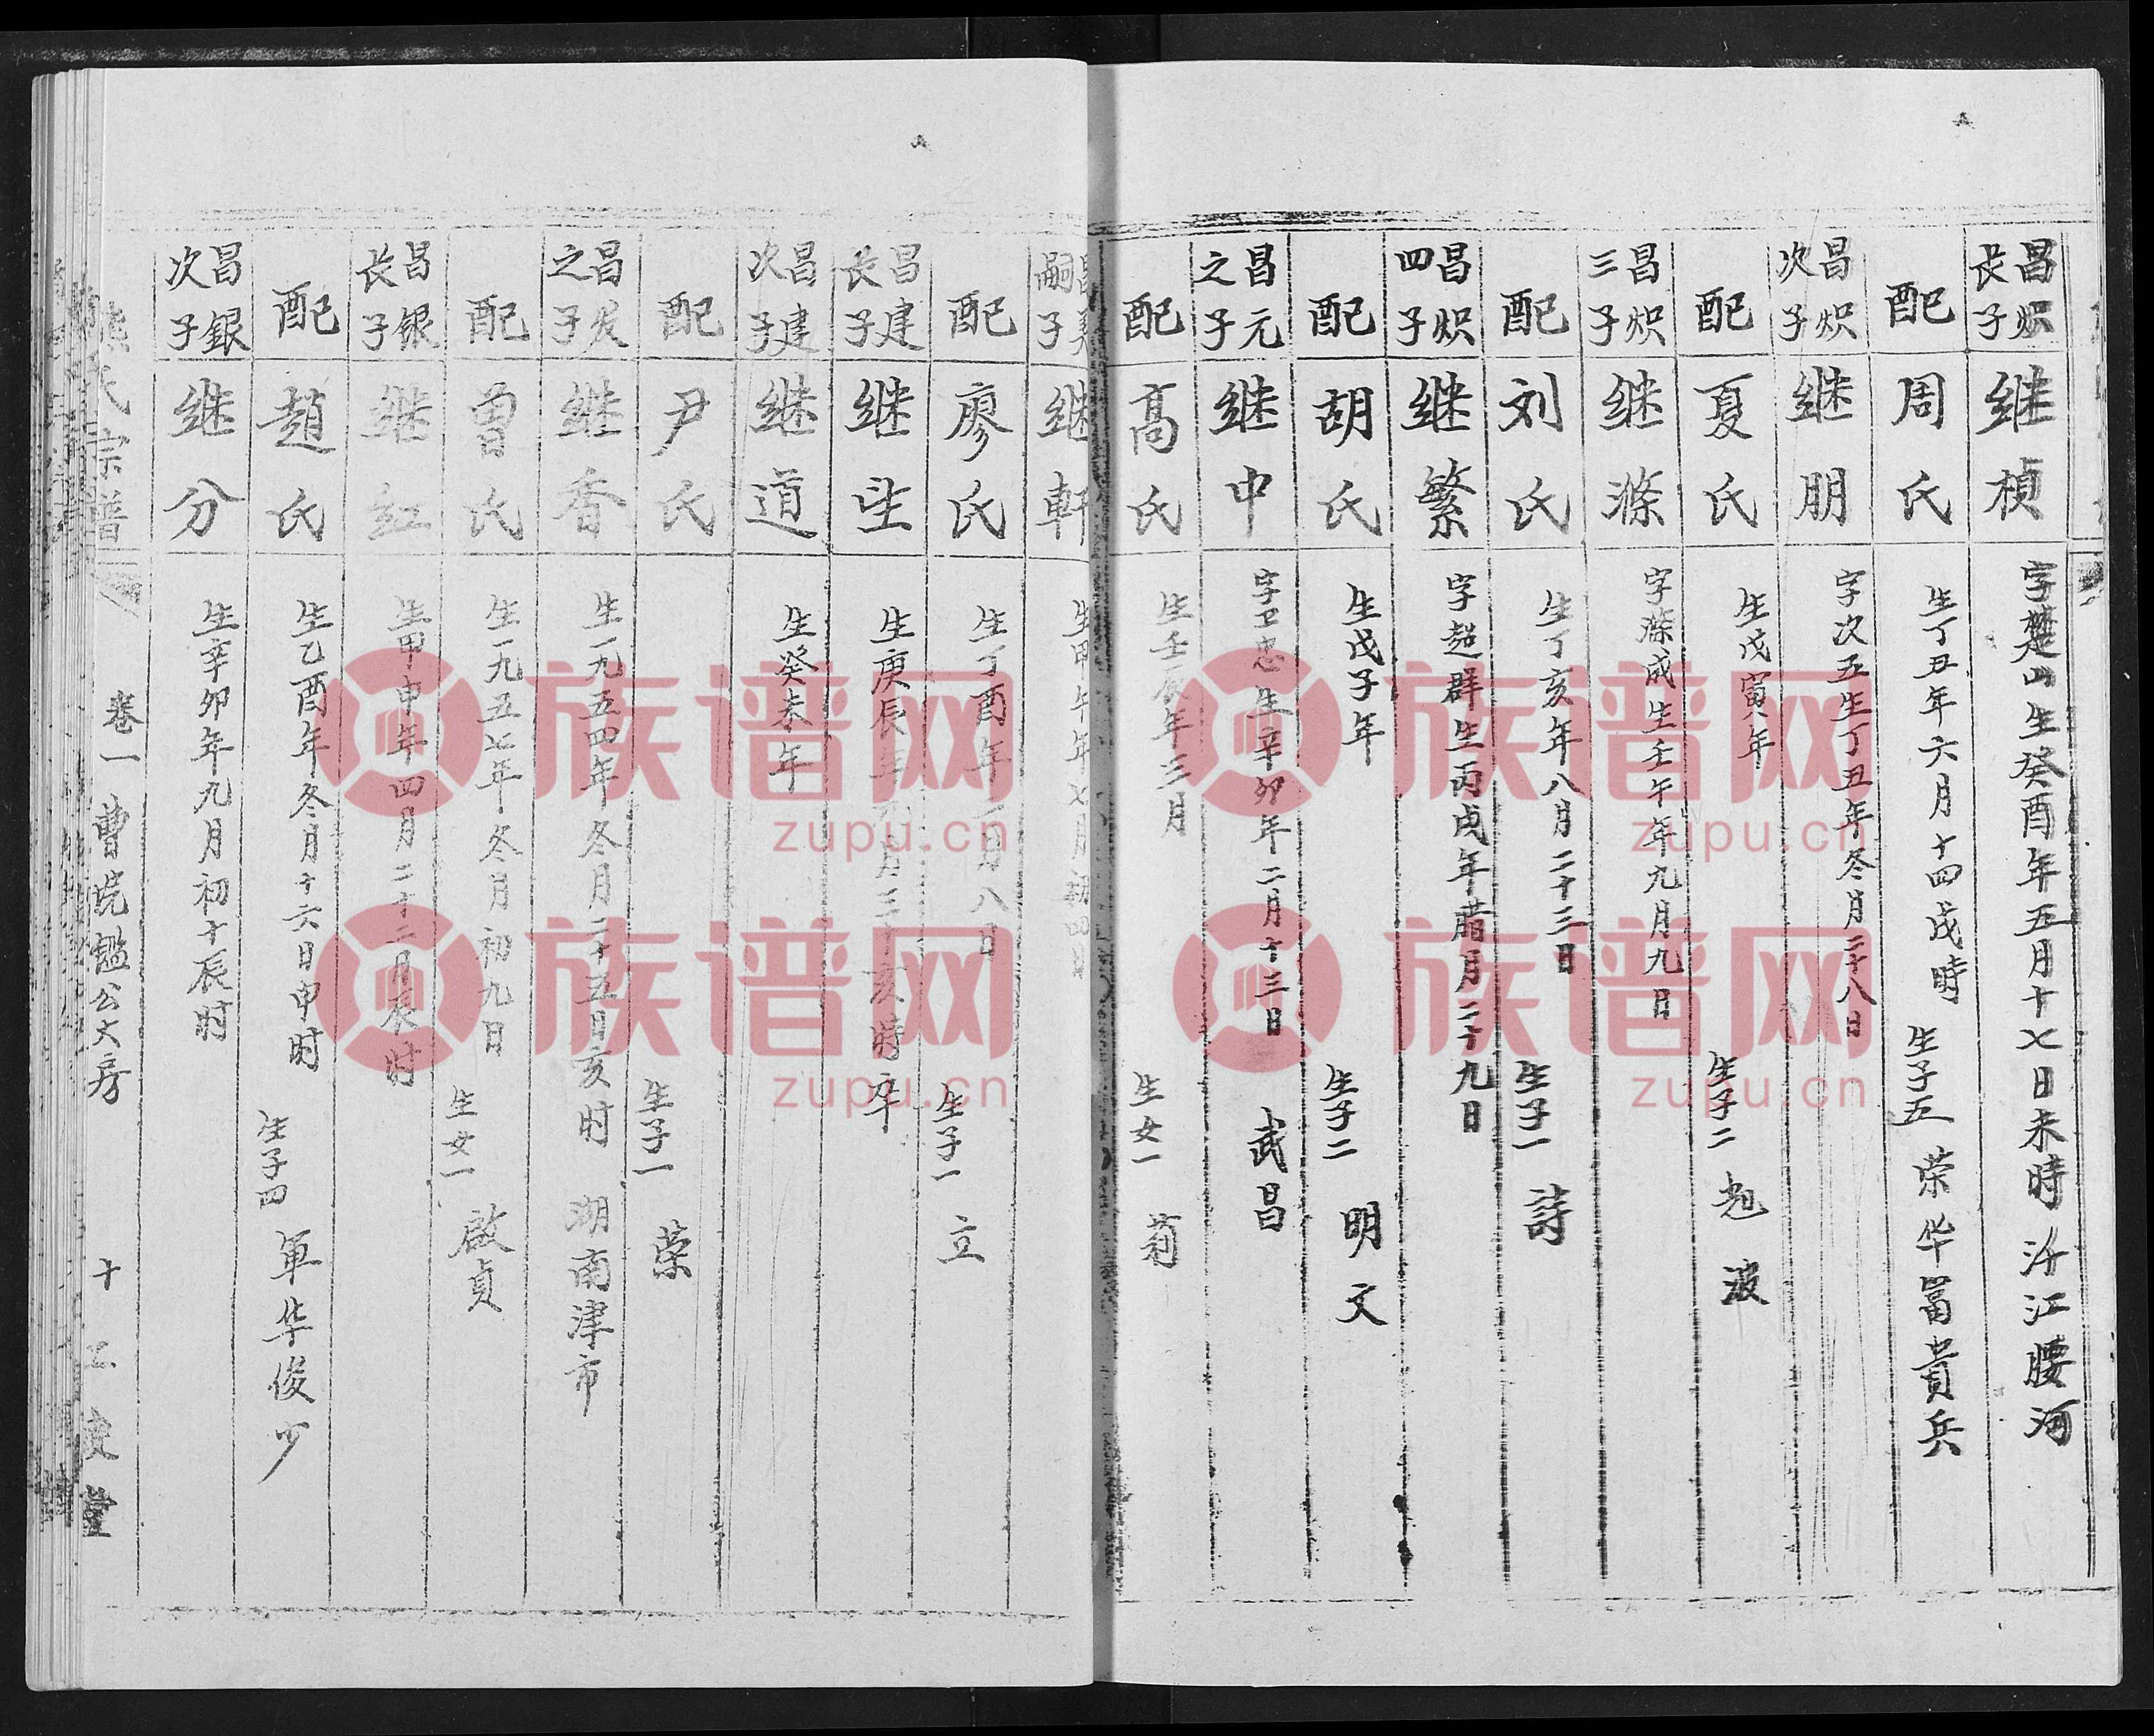 昌炽长子 继桢 字楚山生癸酉年五月十七日未時 沂江腰河
配 周氏 生丁丑年六月十四戌時 生子五 荣华冨貴兵
昌炽次子 继朋 字次五生丁丑年冬月二十八日
配 夏氏 生戊寅年 生子二 旭 波
昌炽三子 继滌 字滌成生壬午年九月九日
配 刘氏 生丁亥年八月二十三日 生子一 詩
昌炽四子 继繁 字超群生丙戌年腊月二十九日
配 胡氏 生戊子年 生子二 明文
昌元之子 继中 字卫忠生辛卯年二月十三日 武昌
配 高氏 生壬辰年三月 生女一 菊
嗣子 继軒 生甲午年七月初四日
配 廖氏 生丁酉年二月八日 生子一 立
昌建长子 继呈 生庚辰年 月三十亥時卒
昌建次子 继道 生癸未年
配 尹氏 生子一 荣
昌发之子 继香 生一九五四年冬月二十五日亥时 湖南津市
配 曾氏 生一九五七年冬月初九日 生女一 啟貞
昌银长子 继红 生甲申年四月二十二月辰时
配 趙氏 生乙酉年冬月十六日申时 生子四 軍华俊少
昌銀次子 继分 生辛卯年九月初十辰时
熊氏宗譜 卷一 曹垸鑑公大房 十二 堂
族谱网
zupu.cn
族谱网
zupu.cn
族谱网
zupu.cn
族谱网
zupu.cn